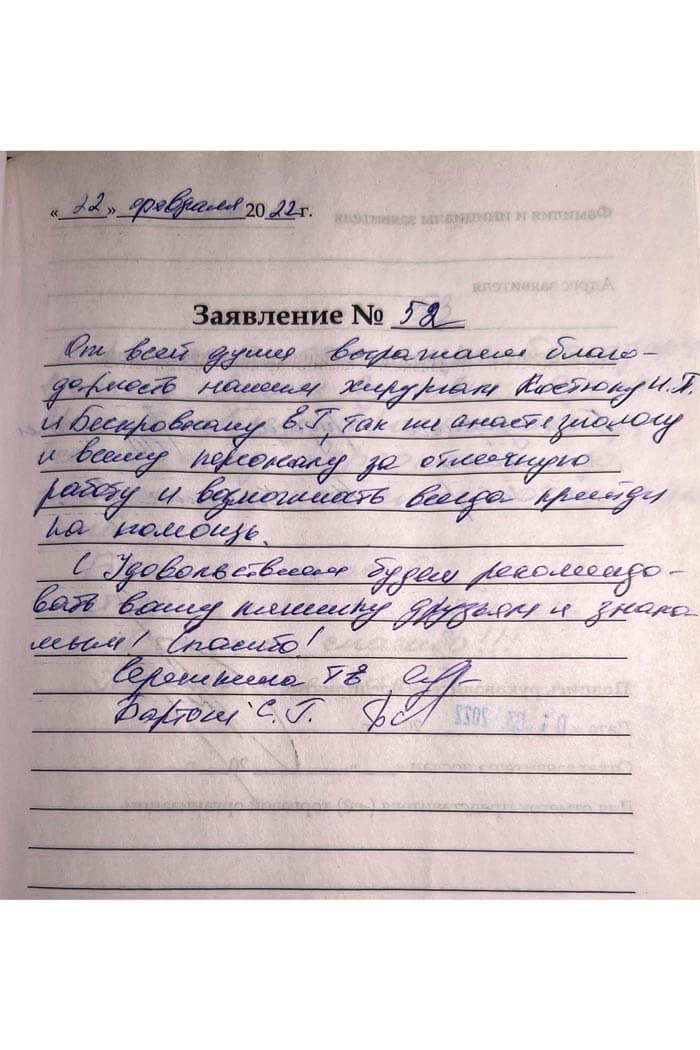 « 22 » февраля 2022 г.
Заявление № 52
От всей души выражаем благо-
дарность нашим хирургам Костюку И.П.
и Бескровному Е.Г, так же анастезиологу
и всему персоналу за отличную
работу и возможность всегда прийди
на помощь.
С Удовольствием будем рекомендо-
вать вашу клинику друзьям и знако
мым! Спасибо!
Т В
С. Г.
Фамилия и инициалы заявителя
Адрес заявителя